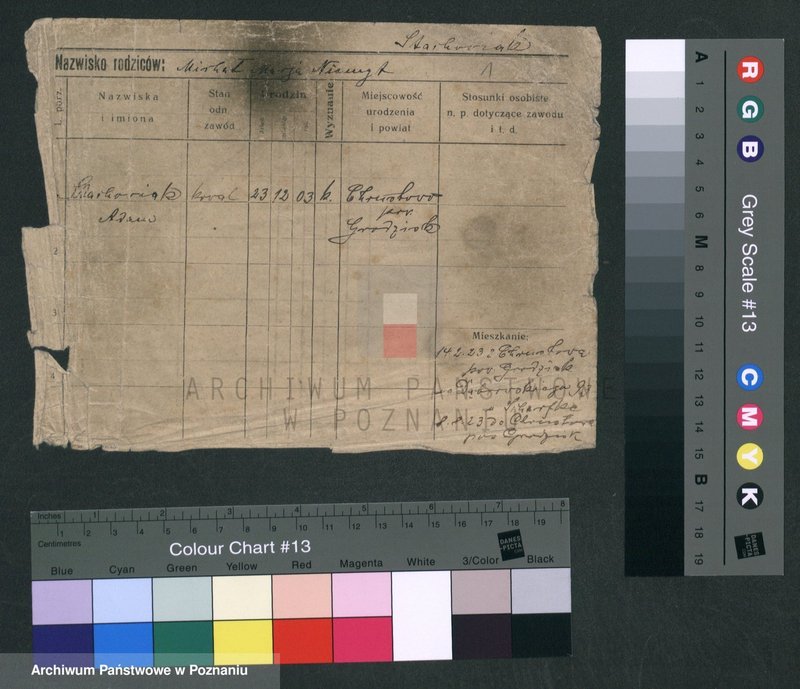 Stachowiak
Nazwisko rodziców: Michał Marja Niemyt 1
L. porz.
Nazwiska
i imiona
Stan
odn.
zawód
Urodzin
Wyznanie
Miejscowość
urodzenia
i powiat
Stosunki osobiste
n. p. dotyczące zawodu
i t. d.
Stachowiak kowal 23 12 03 k. Chrustowo
Adam pow.
Grodzisk
2
3
4
Mieszkanie:
14.2.23 z Chrustowa
pow Grodzisk
u Scharfke
8.8.23 do Chrustowa
pow Grodzisk
ARCHIWUM PAŃSTWOWE
W POZNANIU
Inches 1 2 3 4 5 6 7 8
1 2 3 4 5 6 7 8 9 10 11 12 13 14 15 16 17 18 19
Centimetres
Colour Chart #13
DANES
PICTA
.COM
Blue Cyan Green Yellow Red Magenta White 3/Color Black
Archiwum Państwowe w Poznaniu
A 1 2 3 4 5 6 M 8 9 10 11 12 13 14 15 B 17 18 19
R G B
Grey Scale #13
C M Y K
DANES
PICTA
.COM